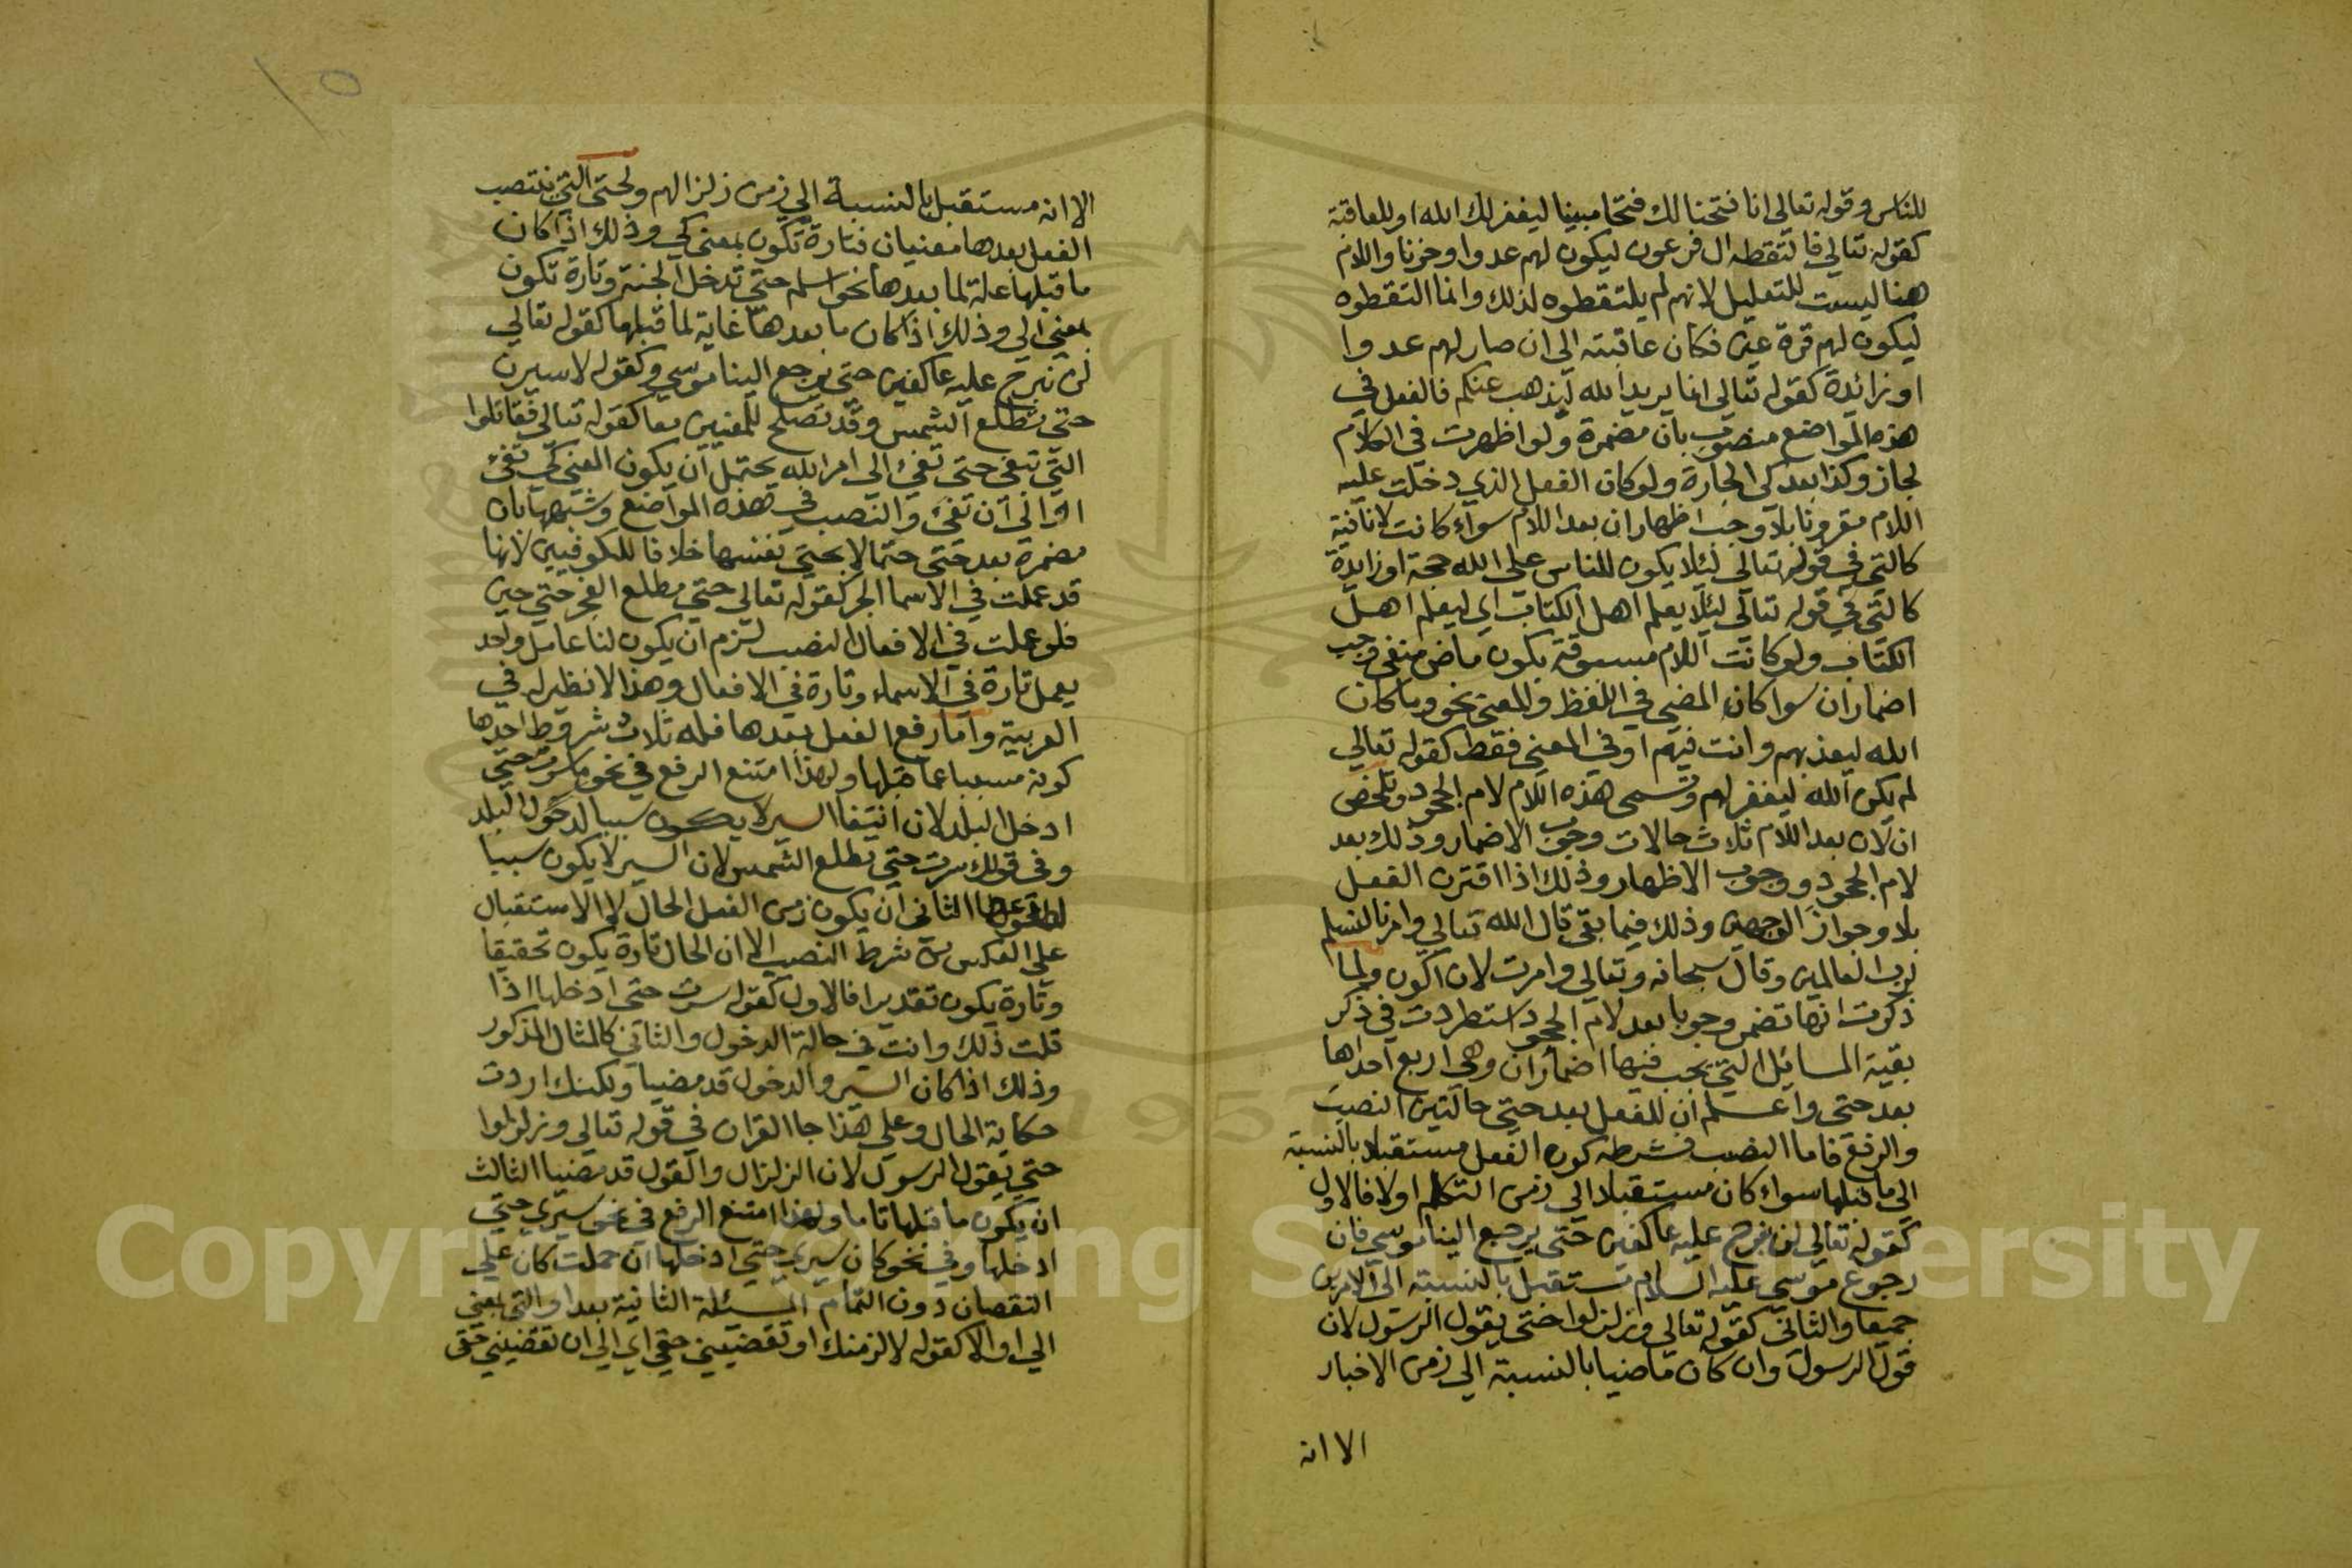 للناس وقوله تعالى انا فتحنا لك فتحا مبينا ليغفر لك الله او للعاقبة
كقوله تعالي فالتقطه ال فرعون ليكون لهم عدوا وحزنا واللام
هنا ليست للتعليل لانهم لم يلتقطوه لذلك وانما التقطوه
ليكون لهم قرة عين فكان عاقبته الى ان صار لهم عدوا
او زائدة كقوله تعالى انما يريد الله ليذهب عنكم فالفعل في
هذه المواضع منصوب بان مضمرة ولو اظهرت في الكلام
لجاز وكذا بعد كي الجارة ولو كان الفعل الذي دخلت عليه
اللام مقرونا بلا وجب اظهار ان بعد اللام سواء كانت لا نافية
كالتي في قوله تعالي لئلا يكون للناس على الله حجة او زايدة
كالتي في قوله تعالي ليلا يعلم اهل الكتاب اي ليعلم اهل
الكتاب ولو كانت اللام مسبوقة بكون ماض منفي وجب
اضمار ان سوا كان المضي في اللفظ والمعنى نحو وما كان
الله ليعذبهم وانت فيهم او في المعني فقط كقوله تعالي
لم يكن الله ليغفر لهم وتسمى هذه اللام لام الجحود وتلخص
ان لان بعد اللام ثلاث حالات وجوب الاضمار وذلك بعد
لام الجحود ووجوب الاظهار وذلك اذا اقترن الفعل
بلا وجواز الوجهين وذلك فيما بقي قال الله تعالي وامرنا لنسلم
لرب العالمين وقال سبحانه وتعالي وامرت لان اكون ولما
ذكرت انها تضمر وجوبا بعد لام الجحود استطردت في ذكر
بقية المسائل التي يجب فيها اضمار ان وهي اربع احداها
بعد حتى واعلم ان للفعل بعد حتي حالتين النصب
والرفع فاما النصب فشرطه كون الفعل مستقبلا بالنسبة
الى ما قبلها سواء كان مستقبلا الي زمن التكلم اولا فالاول
كقوله تعالي لن نبرح عليه عاكفين حتى يرجع الينا موسي فان
رجوع موسي عليه السلام مستقبل بالنسبة الى الامرين
جميعا والثاني كقوله تعالي وزلزلوا حتى يقول الرسول لان
قول الرسول وان كان ماضيا بالنسبة الي زمن الاخبار
الا انه
الا انه مستقبل بالنسبة الي زمن زلزالهم ولحتي التي ينتصب
الفعل بعدها معنيان فتارة تكون بمعنى كي وذلك اذا كان
ما قبلها علة لما بعدها نحو اسلم حتي تدخل الجنة وتارة تكون
بمعني الي وذلك اذا كان ما بعدها غاية لما قبلها كقوله تعالي
لن نبرح عليه عاكفين حتى يرجع الينا موسي وكقوله لاسيرن
حتى تطلع الشمس وقد تصلح للمعنيين معا كقوله تعالي فقاتلوا
التي تبغي حتى تفئ الي امر الله يحتمل ان يكون المعني كي تفئ
او الى ان تفئ والنصب في هذه المواضع وشبهها بان
مضمرة بعد حتى حتما لا بحتي نفسها خلافا للكوفيين لانها
قد عملت في الاسما الجر كقوله تعالي حتي مطلع الفجر حتي حين
فلو عملت في الافعال النصب لزم ان يكون لنا عامل واحد
يعمل تارة في الاسماء وتارة في الافعال وهذا لا نظير له في
العربية واما رفع الفعل بعدها فله ثلاث شروط احدها
كونه مسببا عما قبلها ولهذا امتنع الرفع في نحو ما سرت حتي
ادخل البلد لان انتفا السير لا يكون سببا لدخول البلد
وفي قولك سرت حتي تطلع الشمس لان السير لا يكون سببا
لطلوعها الثاني ان يكون زمن الفعل الحال لا الاستقبال
علي العكس من شرط النصب الا ان الحال تارة يكون تحقيقا
وتارة يكون تقديرا فالاول كقوله سرت حتى ادخلها اذا
قلت ذلك وانت في حالة الدخول والثاني كالمثال المذكور
وذلك اذا كان السير والدخول قد مضيا ولكنك اردت
حكاية الحال وعلي هذا جا القران في قوله تعالي وزلزلوا
حتي يقول الرسول لان الزلزال والقول قد مضيا الثالث
ان يكون ما قبلها تاما ولهذا امتنع الرفع في نحو سيري حتي
ادخلها وفي نحو كان سيري حتي ادخلها ان حملت كان علي
النقصان دون التمام المسئلة الثانية بعد او التي بمعني
الي او الا كقوله لالزمنك او تقضيني حقي اي الي ان تقضيني حقي
Copyright © King Saud University
1957